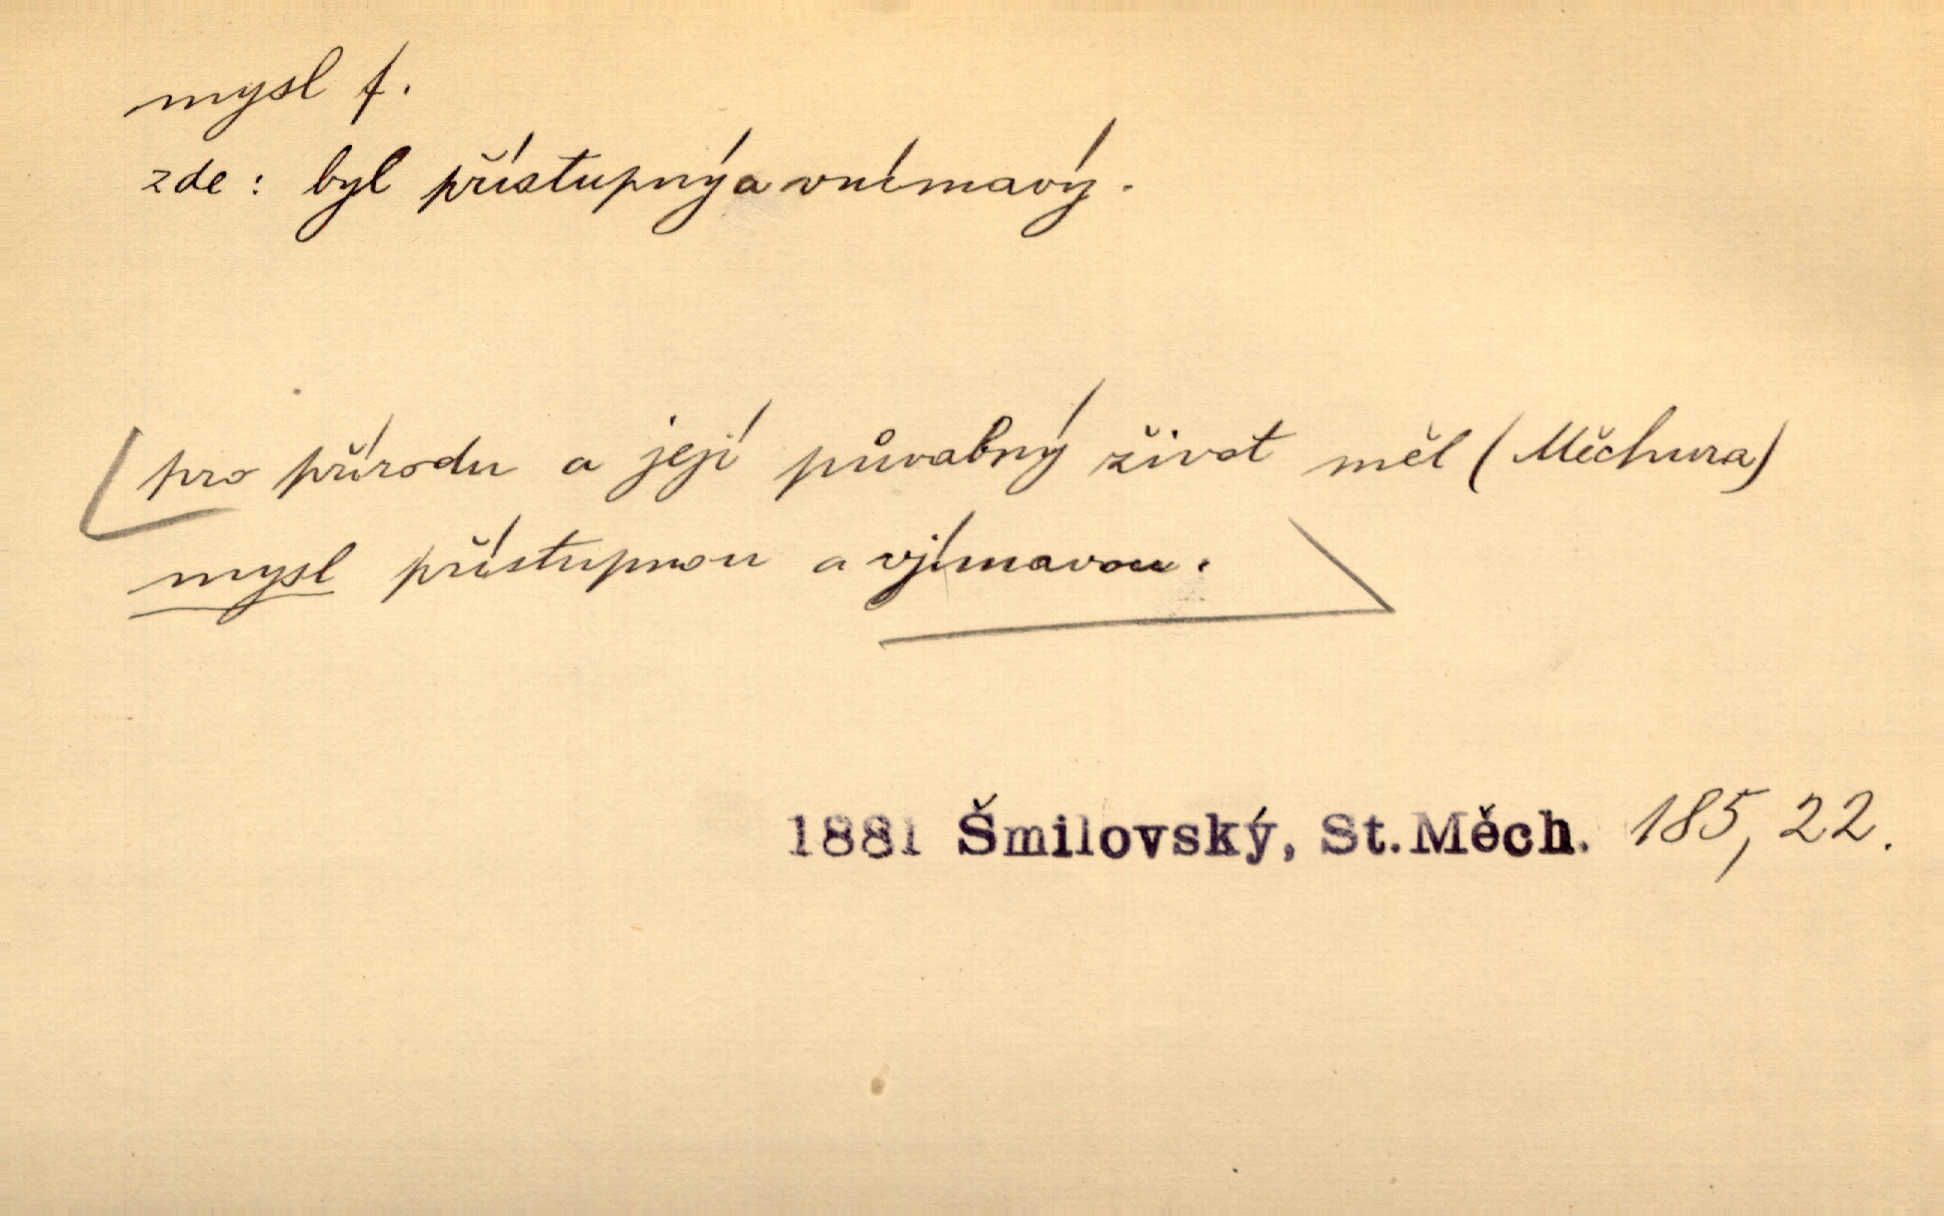 mysl f.
zde: byl přístupný a vnímavý.
pro přírodu a její půvabný život měl (Měchura)
mysl přístupnou a vjímavou.
1881 Šmilovský, St.Měch. 185, 22.